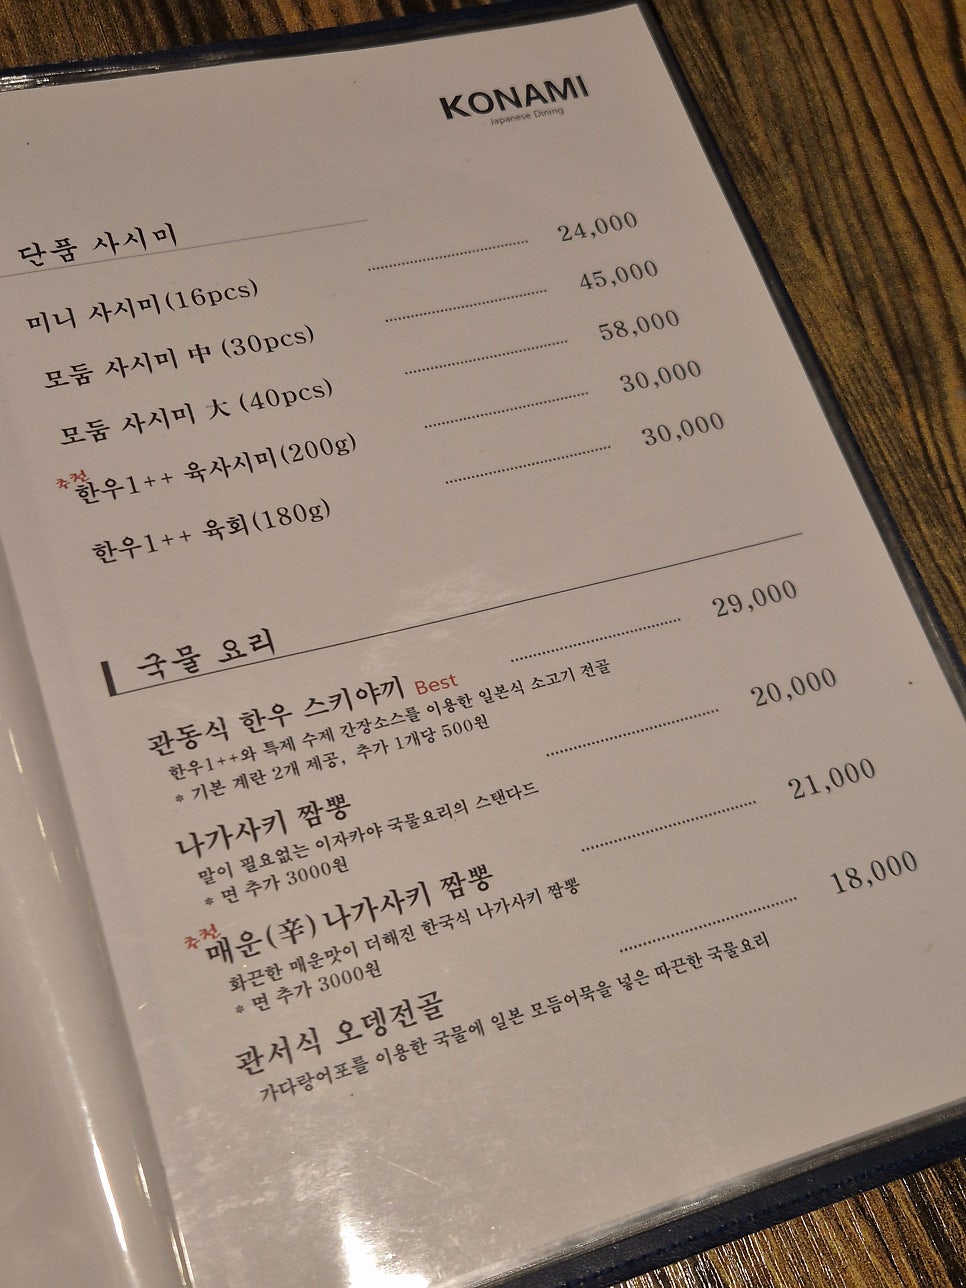 KONAMI
Japanese Dining
단품 사시미
미니 사시미(16pcs) 24,000
모둠 사시미 中 (30pcs) 45,000
모둠 사시미 大 (40pcs) 58,000
추천 한우1++ 육사시미(200g) 30,000
한우1++ 육회(180g) 30,000
국물 요리
관동식 한우 스키야끼 Best 29,000
한우1++와 특제 수제 간장소스를 이용한 일본식 소고기 전골
* 기본 계란 2개 제공, 추가 1개당 500원
나가사키 짬뽕 20,000
말이 필요없는 이자카야 국물요리의 스탠다드
* 면 추가 3000원
추천 매운(辛)나가사키 짬뽕 21,000
화끈한 매운맛이 더해진 한국식 나가사키 짬뽕
* 면 추가 3000원
관서식 오뎅전골 18,000
가다랑어포를 이용한 국물에 일본 모듬어묵을 넣은 따끈한 국물요리